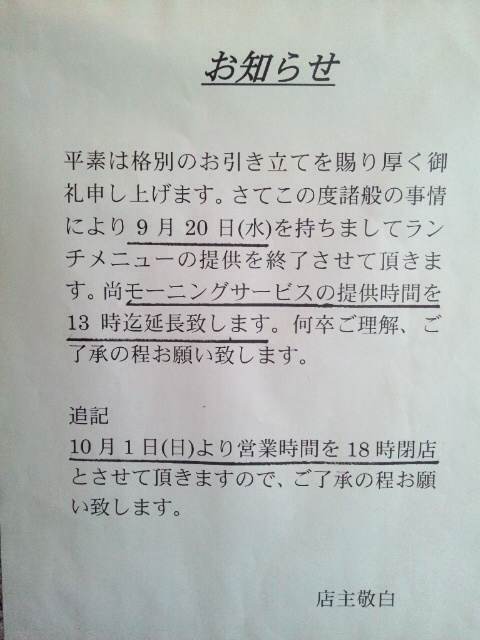 お知らせ
平素は格別のお引き立てを賜り厚く御
礼申し上げます。さてこの度諸般の事情
により9月20日(水)を持ちましてラン
チメニューの提供を終了させて頂きま
す。尚モーニングサービスの提供時間を
13時迄延長致します。何卒ご理解、ご
了承の程お願い致します。
追記
10月1日(日)より営業時間を18時閉店
とさせて頂きますので、ご了承の程お願
い致します。
店主敬白